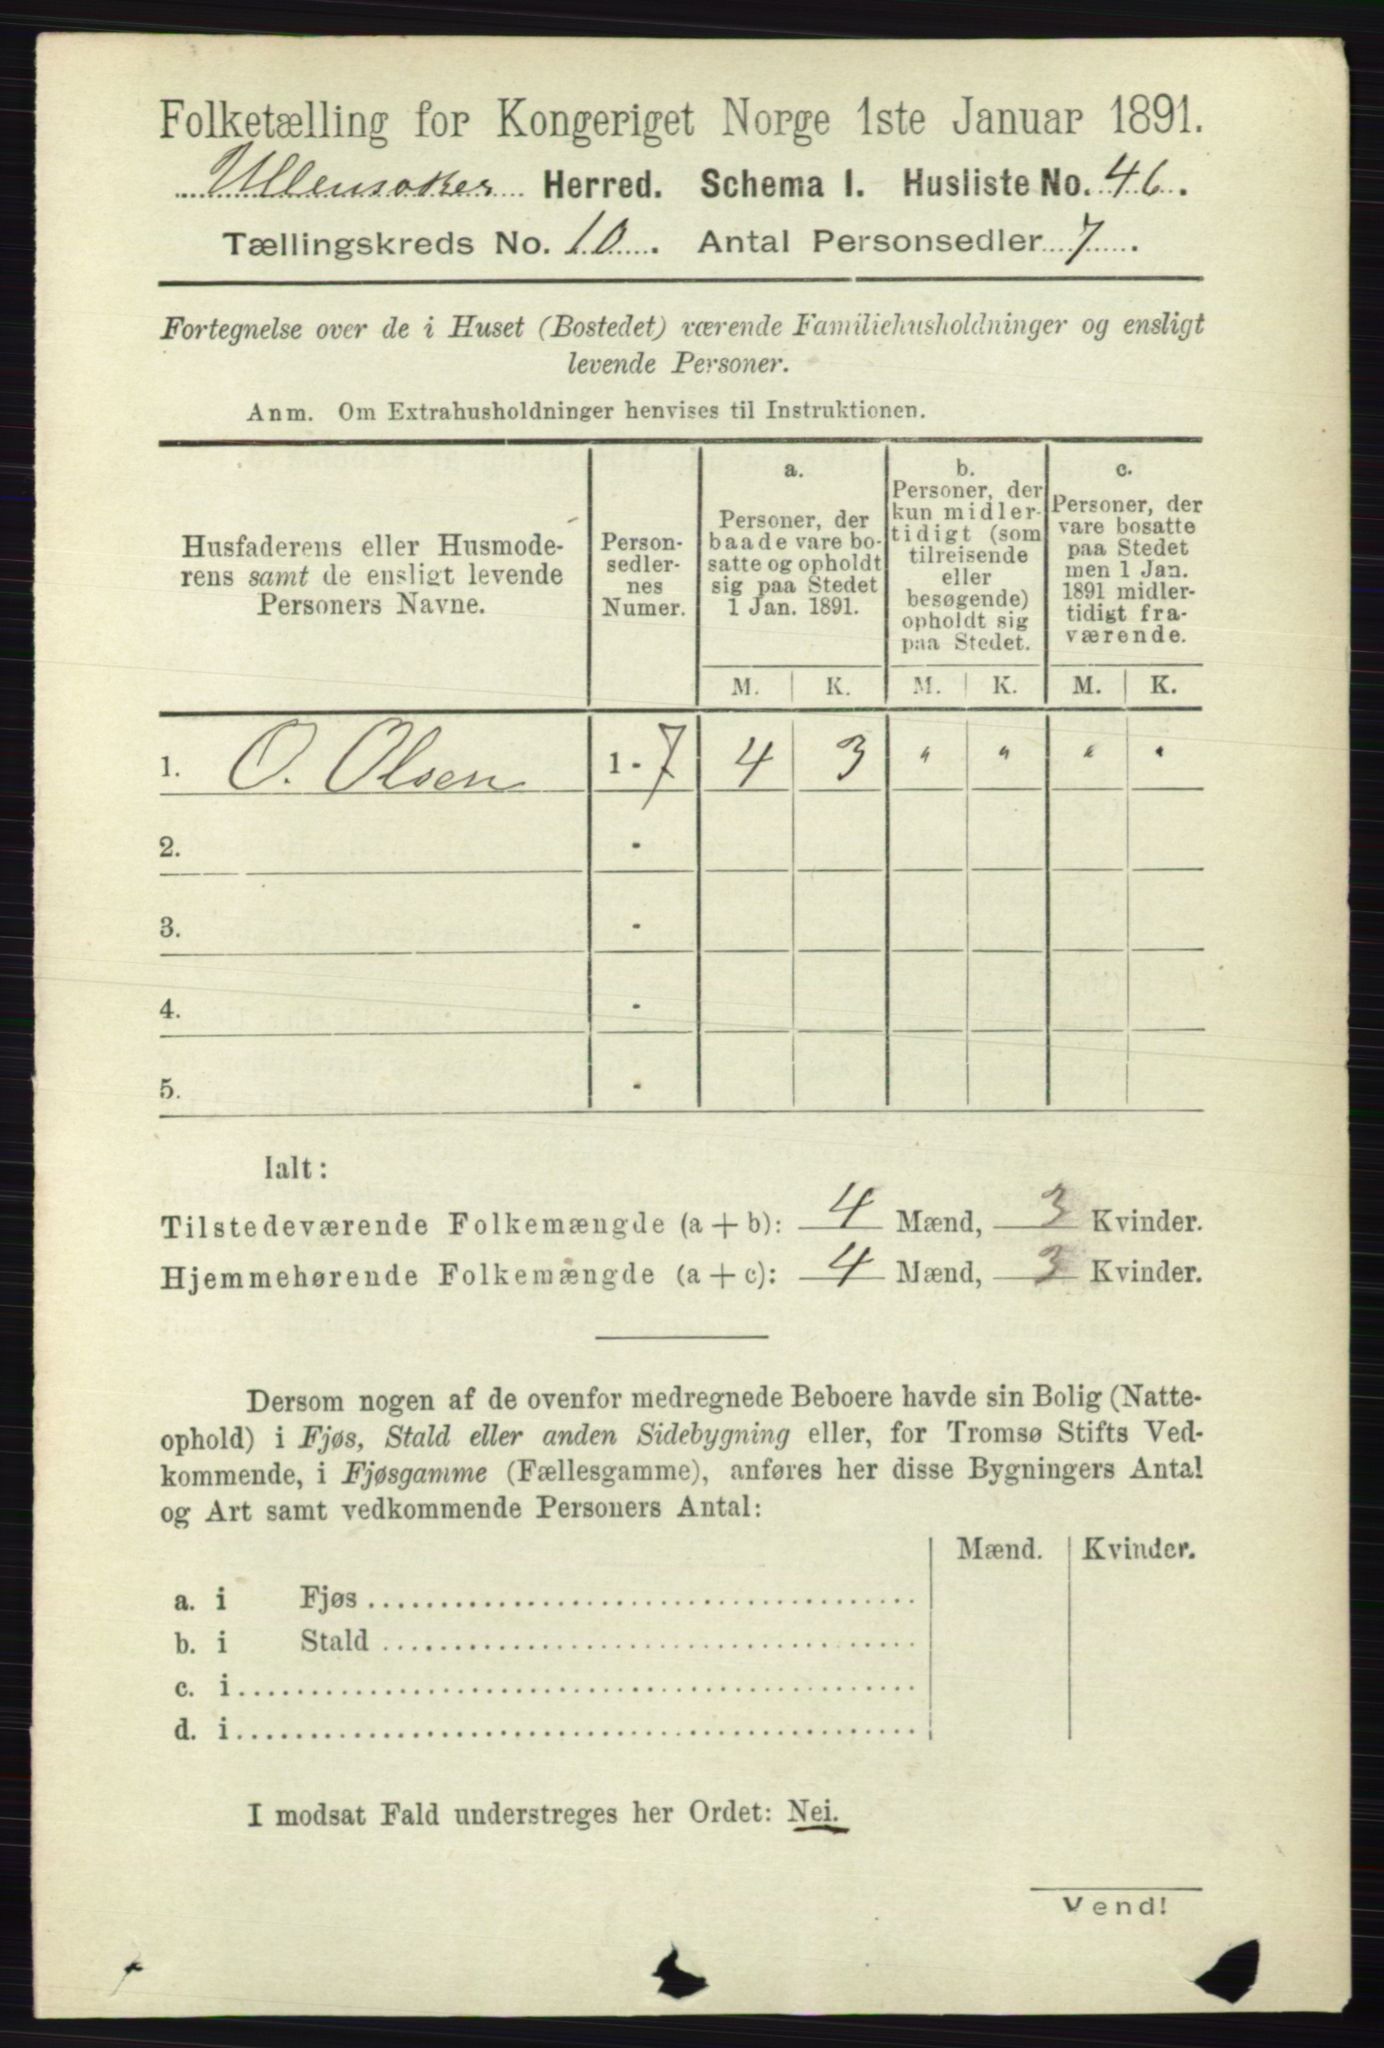 Folketælling for Kongeriget Norge 1ste Januar 1891.
Ullensaker Herred. Schema I. Husliste No. 46.
Tællingskreds No. 10. Antal Personsedler 7.
Fortegnelse over de i Huset (Bostedet) værende Familiehusholdninger og ensligt
levende Personer.
Anm. Om Extrahusholdninger henvises til Instruktionen.
Husfaderens eller Husmode-
rens samt de ensligt levende
Personers Navne.
Person-
sedler-
nes
Numer.
a.
Personer, der
baade vare bo-
satte og opholdt
sig paa Stedet
1 Jan. 1891.
b.
Personer, der
kun midler-
tidigt (som
tilreisende
eller
besøgende)
opholdt sig
paa Stedet.
c.
Personer, der
vare bosatte
paa Stedet
men 1 Jan.
1891 midler-
tidigt fra-
værende.
M. K. M. K. M. K.
1. O. Olsen 1 - 7 4 3 " " " "
2. -
3. -
4. -
5. -
Ialt:
Tilstedeværende Folkemængde (a + b): 4 Mænd, 3 Kvinder.
Hjemmehørende Folkemængde (a + c): 4 Mænd, 3 Kvinder.
Dersom nogen af de ovenfor medregnede Beboere havde sin Bolig (Natte-
ophold) i Fjøs, Stald eller anden Sidebygning eller, for Tromsø Stifts Ved-
kommende, i Fjøsgamme (Fællesgamme), anføres her disse Bygningers Antal
og Art samt vedkommende Personers Antal:
Mænd. Kvinder.
a. i Fjøs
b. i Stald
c. i
d. i
I modsat Fald understreges her Ordet: Nei.
Vend!